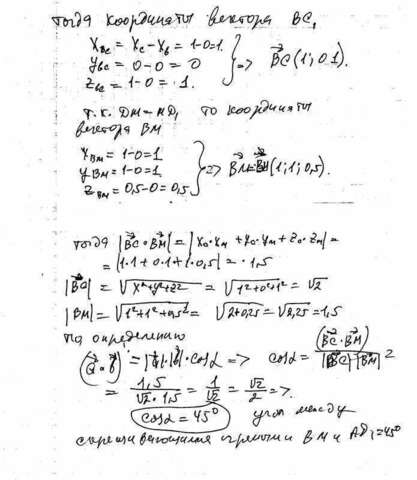 тогда координаты вектора BC,
x_BC = x_C – x_B = 1-0=1.
y_BC = 0-0 = 0
z_BC = 1-0 = 1.
} => BC (1; 0 1).
т.к. DM = MD, то координаты
вектора BM
x_BM = 1-0=1
y_BM = 1-0=1
z_BM = 0,5-0=0,5
} => BM (1; 1; 0,5).
тогда |BC • BM| = |x₀·x_M + y₀·y_M + z₀·z_M| =
= |1·1 + 0·1 + 1·0,5| = 1,5
|BC| = √x²+y²+z² = √1²+0²+1² = √2
|BM| = √1²+1²+0,5² = √2+0,25 = √2,25 = 1,5
По определению
(a • b) = |a|·|b|·cosα => cosα = (BC • BM) / |BC| |BM| =
= 1,5 / √2 · 1,5 = 1/√2 = √2/2 =>.
cosα = 45° угол между
скрещивающимися прямыми BM и AD₁=45°